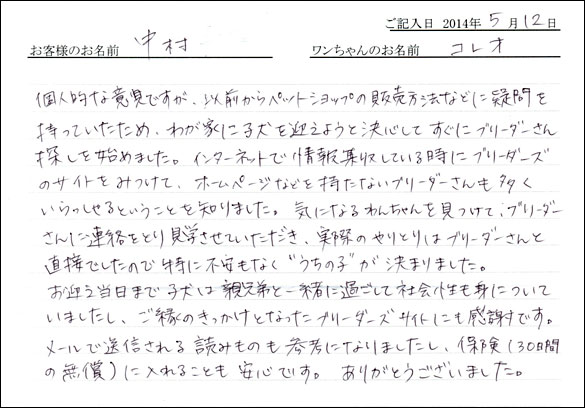 ご記入日 2014年 5月12日
お客様のお名前 中村 ワンちゃんのお名前 コレオ
個人的な意見ですが、以前からペットショップの販売方法などに疑問を
持っていたため、わが家に子犬を迎えようと決心してすぐにブリーダーさん
探しを始めました。インターネットで情報集収している時にブリーダーズ
のサイトをみつけて、ホームページなどを持たないブリーダーさんも多く
いらっしゃるということを知りました。気になるわんちゃんを見つけて、ブリーダー
さんに連絡をとり見学させていただき、実際のやりとりはブリーダーさんと
直接でしたので特に不安もなく"うちの子"が決まりました。
お迎え当日まで子犬は親兄弟と一緒に過ごして社会性も身について
いましたし、ご縁のきっかけとなったブリーダーズサイトにも感謝です。
メールで送信される読みものも参考になりましたし、保険(30日間
の無償)に入れることも安心です。ありがとうございました。